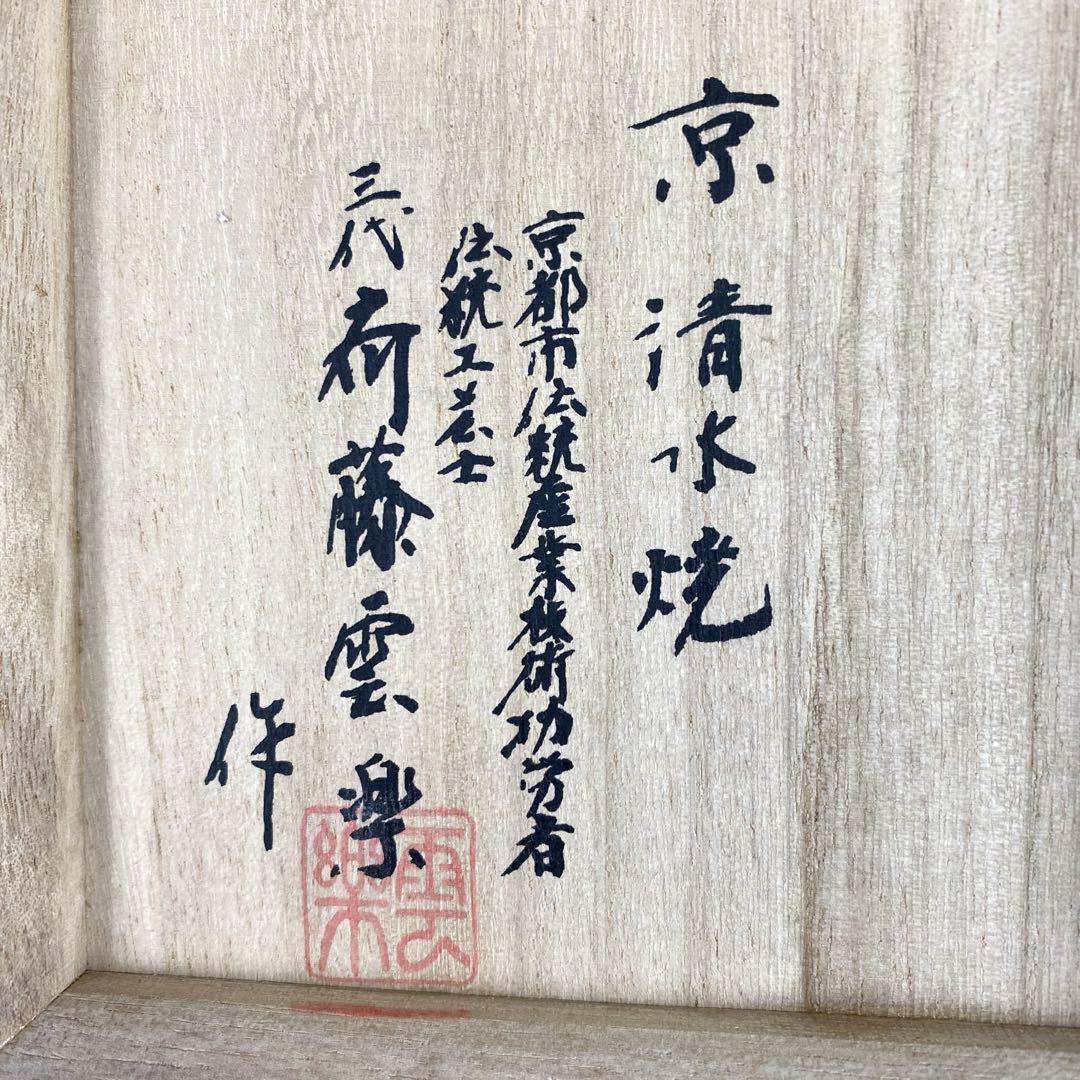 京 清水焼
京都市伝統産業技術功労者
伝統工芸士
三代 斉藤雲楽
作
雲樂